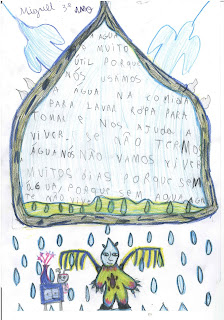 Miguel 3º ANO
A ÁGUA
É MUITO
ÚTIL PORQUE
NÓS USAMOS
A AGUA NA COMIDA
PARA LAVAR ROPA PARA
TOMAR E NOS AJUDA A
VIVER. SE NÃO TERMOS
AGUA NÓS NÃO VAMOS VIVER
MUITOS DIAS PORQUE SEM
ÁGUA PORQUE SEM AGUA
NÃO VIVE